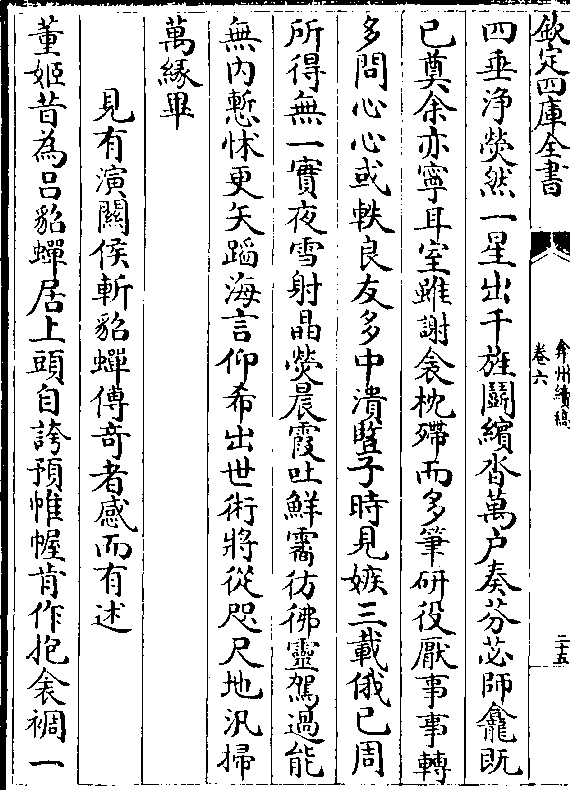 欽定四庫全書
弇州續稿
卷六
二十五
四垂浄熒然一星出千旌鬬繽沓萬户奏芬苾師龕既
已奠余亦寧耳室雖謝衾枕殢而多筆研役厭事事轉
多問心心或軼良友多中潰豎子時見嫉三載俄已周
所得無一實夜雪射晶熒晨霞吐鮮霱彷彿靈駕過能
無内慙怵更矢蹈海言仰希出世術將從咫尺地汎掃
萬緣畢
見有演關侯斬貂蟬傳竒者感而有述
董姬昔為吕貂蟬居上頭自誇預帷幄肯作抱衾裯一